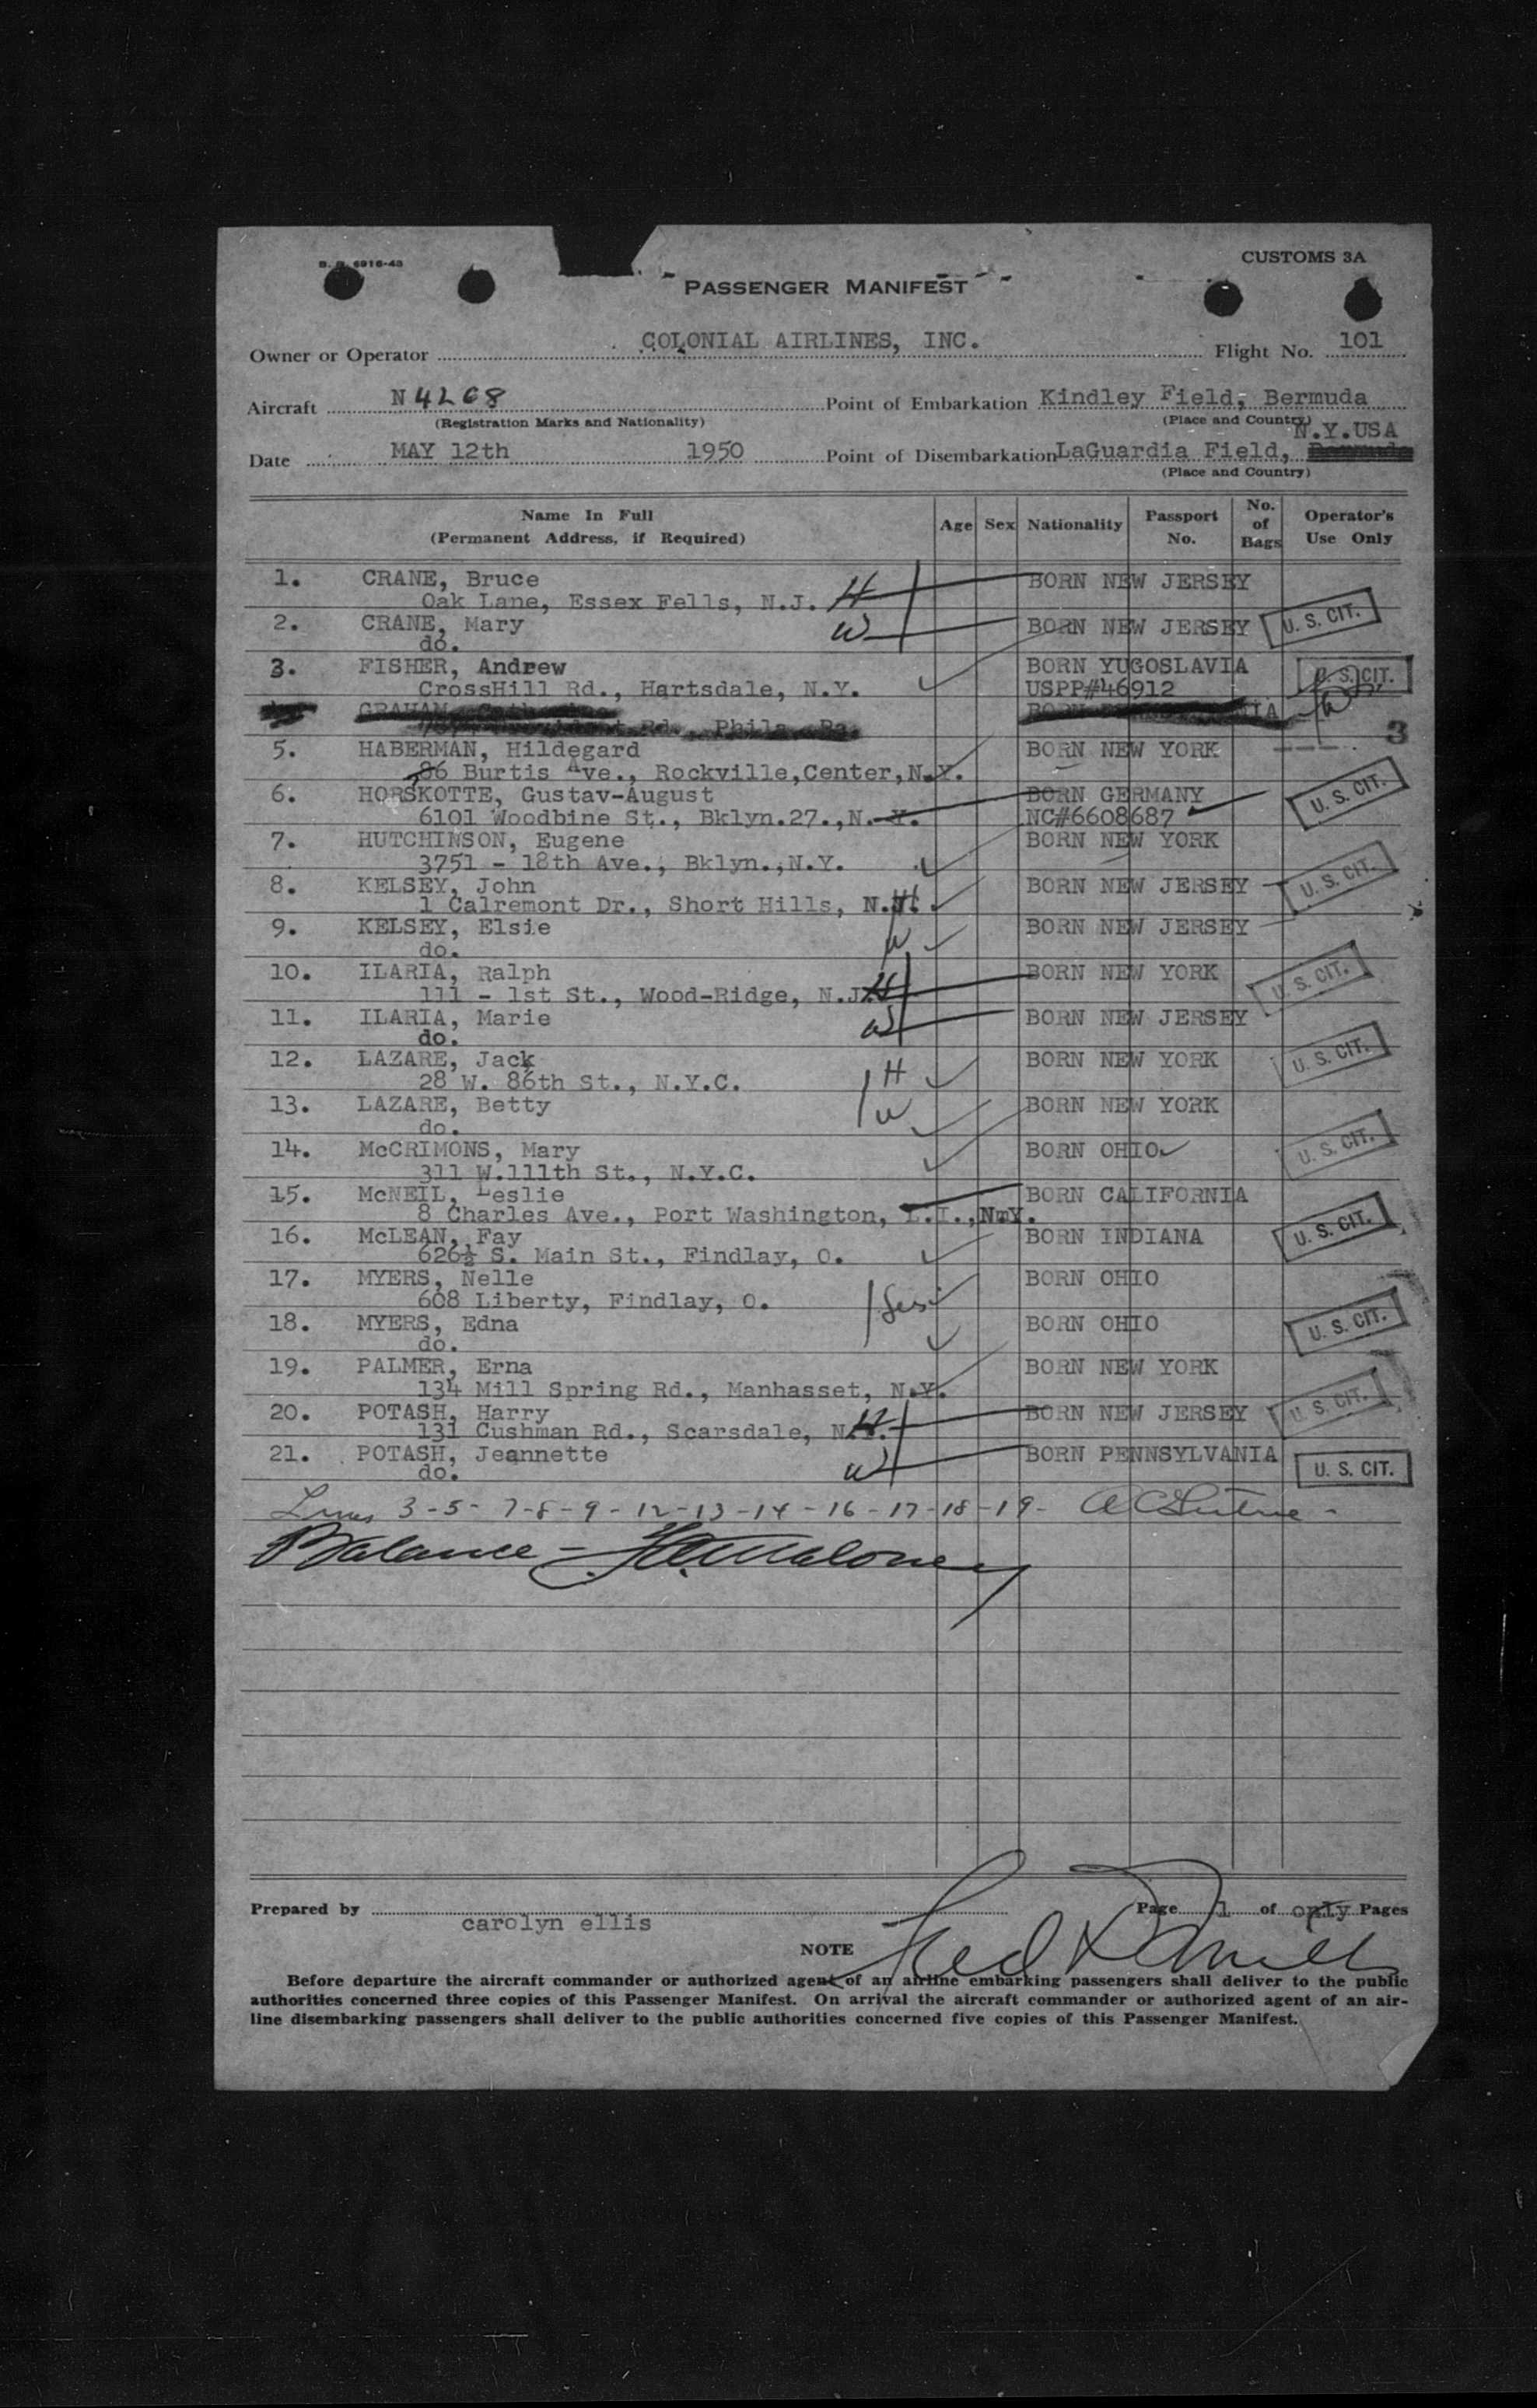 CUSTOMS 3A
PASSENGER MANIFEST
Owner or Operator COLONIAL AIRLINES, INC. Flight No. 101
Aircraft N4268 Point of Embarkation Kindley Field, Bermuda
(Registration Marks and Nationality) (Place and Country)
N.Y.USA
Date MAY 12th 1950 Point of Disembarkation LaGuardia Field,
(Place and Country)
Name In Full (Permanent Address, if Required) Age Sex Nationality Passport No. No. of Bags Operator's Use Only
1. CRANE, Bruce BORN NEW JERSEY
Oak Lane, Essex Fells, N.J. H
2. CRANE, Mary W BORN NEW JERSEY U. S. CIT.
do.
3. FISHER, Andrew BORN YUGOSLAVIA
CrossHill Rd., Hartsdale, N.Y. USPP#46912 U. S. CIT.
GRAHAM,
Rd., Phila. Pa. 3
5. HABERMAN, Hildegard BORN NEW YORK
86 Burtis Ave., Rockville,Center,N.Y.
6. HORSKOTTE, Gustav-August BORN GERMANY U. S. CIT.
6101 Woodbine St., Bklyn.27.,N.Y. NC#6608687
7. HUTCHINSON, Eugene BORN NEW YORK
3751 - 18th Ave., Bklyn.,N.Y.
8. KELSEY, John BORN NEW JERSEY U. S. CIT.
1 Calremont Dr., Short Hills, N. H
9. KELSEY, Elsie BORN NEW JERSEY
do. W
10. ILARIA, Ralph BORN NEW YORK U. S. CIT.
111 - 1st St., Wood-Ridge, N.J. H
11. ILARIA, Marie BORN NEW JERSEY
do. W
12. LAZARE, Jack BORN NEW YORK U. S. CIT.
28 W. 86th St., N.Y.C. H
13. LAZARE, Betty W BORN NEW YORK
do.
14. McCRIMONS, Mary BORN OHIO U. S. CIT.
311 W.111th St., N.Y.C.
15. McNEIL, Leslie BORN CALIFORNIA
8 Charles Ave., Port Washington, L.I.,NmY.
16. McLEAN, Fay BORN INDIANA U. S. CIT.
626½ S. Main St., Findlay, O.
17. MYERS, Nelle BORN OHIO
608 Liberty, Findlay, O.
18. MYERS, Edna BORN OHIO U. S. CIT.
do.
19. PALMER, Erna BORN NEW YORK
134 Mill Spring Rd., Manhasset, N.Y.
20. POTASH, Harry BORN NEW JERSEY U. S. CIT.
131 Cushman Rd., Scarsdale, N. H
21. POTASH, Jeannette BORN PENNSYLVANIA U. S. CIT.
do. W
3-5-7-8-9-12-13-14-16-17-18-19-
Balance - Maloney
Prepared by carolyn ellis Page 1 of only Pages
NOTE
Before departure the aircraft commander or authorized agent of an airline embarking passengers shall deliver to the public
authorities concerned three copies of this Passenger Manifest. On arrival the aircraft commander or authorized agent of an air-
line disembarking passengers shall deliver to the public authorities concerned five copies of this Passenger Manifest.